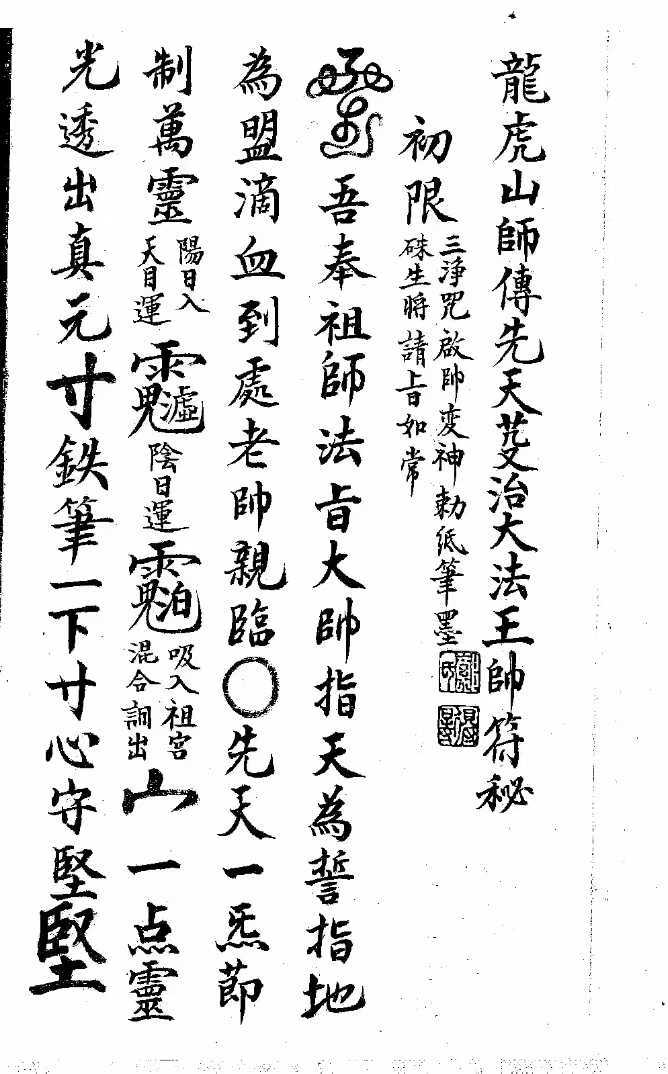 龍虎山師傳先天芟治大法王帥符秘
初限
三淨咒啟帥变神勅紙筆墨
硃生將請旨如常
吾奉祖師法旨大帥指天為誓指地
為盟滴血到處老帥親臨〇先天一炁節
制萬靈
陽日入
天目運
陰日運
吸入祖宮
混合調出
一点靈
光透出真元寸鉄筆一下寸心守堅堅